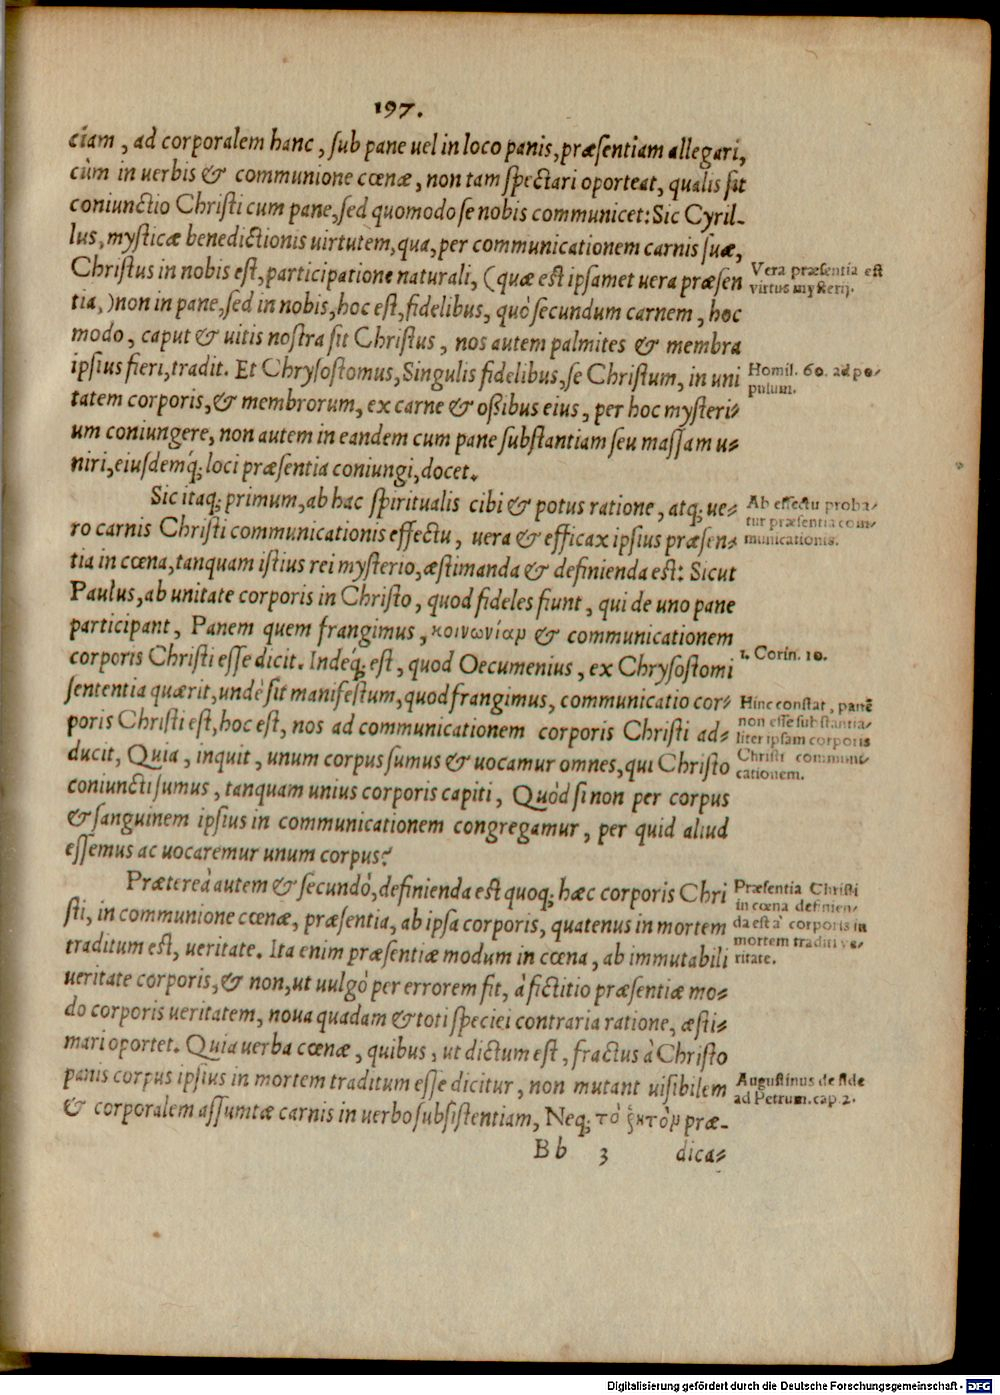 197.
ciam, ad corporalem hanc, ſub pane uel in loco panis, præſentiam allegari,
cùm in uerbis & communione cœnæ, non tam ſpectari oporteat, qualis ſit
coniunctio Chriſti cum pane, ſed quomodo ſe nobis communicet: Sic Cyril-
lus, myſticæ benedictionis uirtutem, qua, per communicationem carnis ſuæ,
Chriſtus in nobis eſt, participatione naturali, (quæ eſt ipſamet uera præſen
tia,) non in pane, ſed in nobis, hoc eſt, fidelibus, quò ſecundum carnem, hoc
modo, caput & uitis noſtra ſit Chriſtus, nos autem palmites & membra
ipſius fieri, tradit. Et Chryſoſtomus, Singulis fidelibus, ſe Chriſtum, in uni
tatem corporis, & membrorum, ex carne & oßibus eius, per hoc myſteri-
um coniungere, non autem in eandem cum pane ſubſtantiam ſeu maſſam u-
niri, eiuſdemq́; loci præſentia coniungi, docet.
Vera præſentia eſt
virtus myſterij.
Homil. 60. ad po-
pulum.
Sic itaq; primum, ab hac ſpiritualis cibi & potus ratione, atq; ue-
ro carnis Chriſti communicationis effectu, uera & efficax ipſius præſen-
tia in cœna, tanquam iſtius rei myſterio, æſtimanda & definienda eſt: Sicut
Paulus, ab unitate corporis in Chriſto, quod fideles fiunt, qui de uno pane
participant, Panem quem frangimus, κοινωνίαν & communicationem
corporis Chriſti eſſe dicit. Indeq́; eſt, quod Oecumenius, ex Chryſoſtomi
ſententia quærit, undè ſit manifeſtum, quod frangimus, communicatio cor-
poris Chriſti eſt, hoc eſt, nos ad communicationem corporis Chriſti ad-
ducit, Quia, inquit, unum corpus ſumus & uocamur omnes, qui Chriſto
coniuncti ſumus, tanquam unius corporis capiti, Quòd ſi non per corpus
& ſanguinem ipſius in communicationem congregamur, per quid aliud
eſſemus ac uocaremur unum corpus?
Ab effectu proba-
tur præſentia com-
municationis.
1. Corin. 10.
Hinc conſtat, panē
non eſſe ſubſtantia-
liter ipſam corporis
Chriſti communi-
cationem.
Prætereà autem & ſecundò, definienda eſt quoq; hæc corporis Chri
ſti, in communione cœnæ, præſentia, ab ipſa corporis, quatenus in mortem
traditum eſt, ueritate. Ita enim præſentiæ modum in cœna, ab immutabili
ueritate corporis, & non, ut uulgò per errorem fit, à fictitio præſentiæ mo-
do corporis ueritatem, noua quadam & toti ſpeciei contraria ratione, æſti-
mari oportet. Quia uerba cœnæ, quibus, ut dictum eſt, fractus à Chriſto
panis corpus ipſius in mortem traditum eſſe dicitur, non mutant uiſibilem
& corporalem aſſumtæ carnis in uerbo ſubſiſtentiam, Neq; τὸ ῥητὸν præ-
Præſentia Chriſti
in cœna definien-
da eſt à corporis in
mortem traditi ve-
ritate.
Auguſtinus de fide
ad Petrum. cap. 2.
Bb 3 dica-
Digitalisierung gefördert durch die Deutsche Forschungsgemeinschaft - DFG